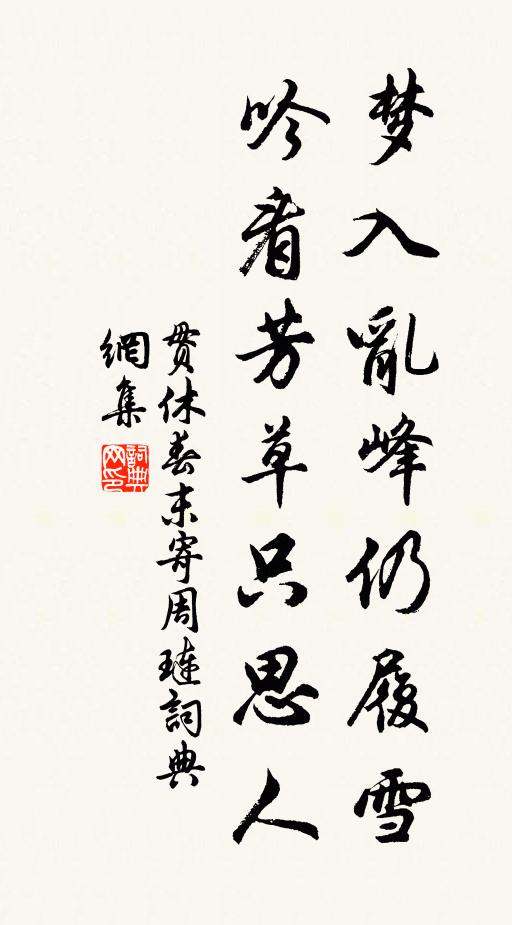 梦入亂峰仍履雪
吟看芳草只思人
贯休春末寄周璉詞典
網集
詞典网印